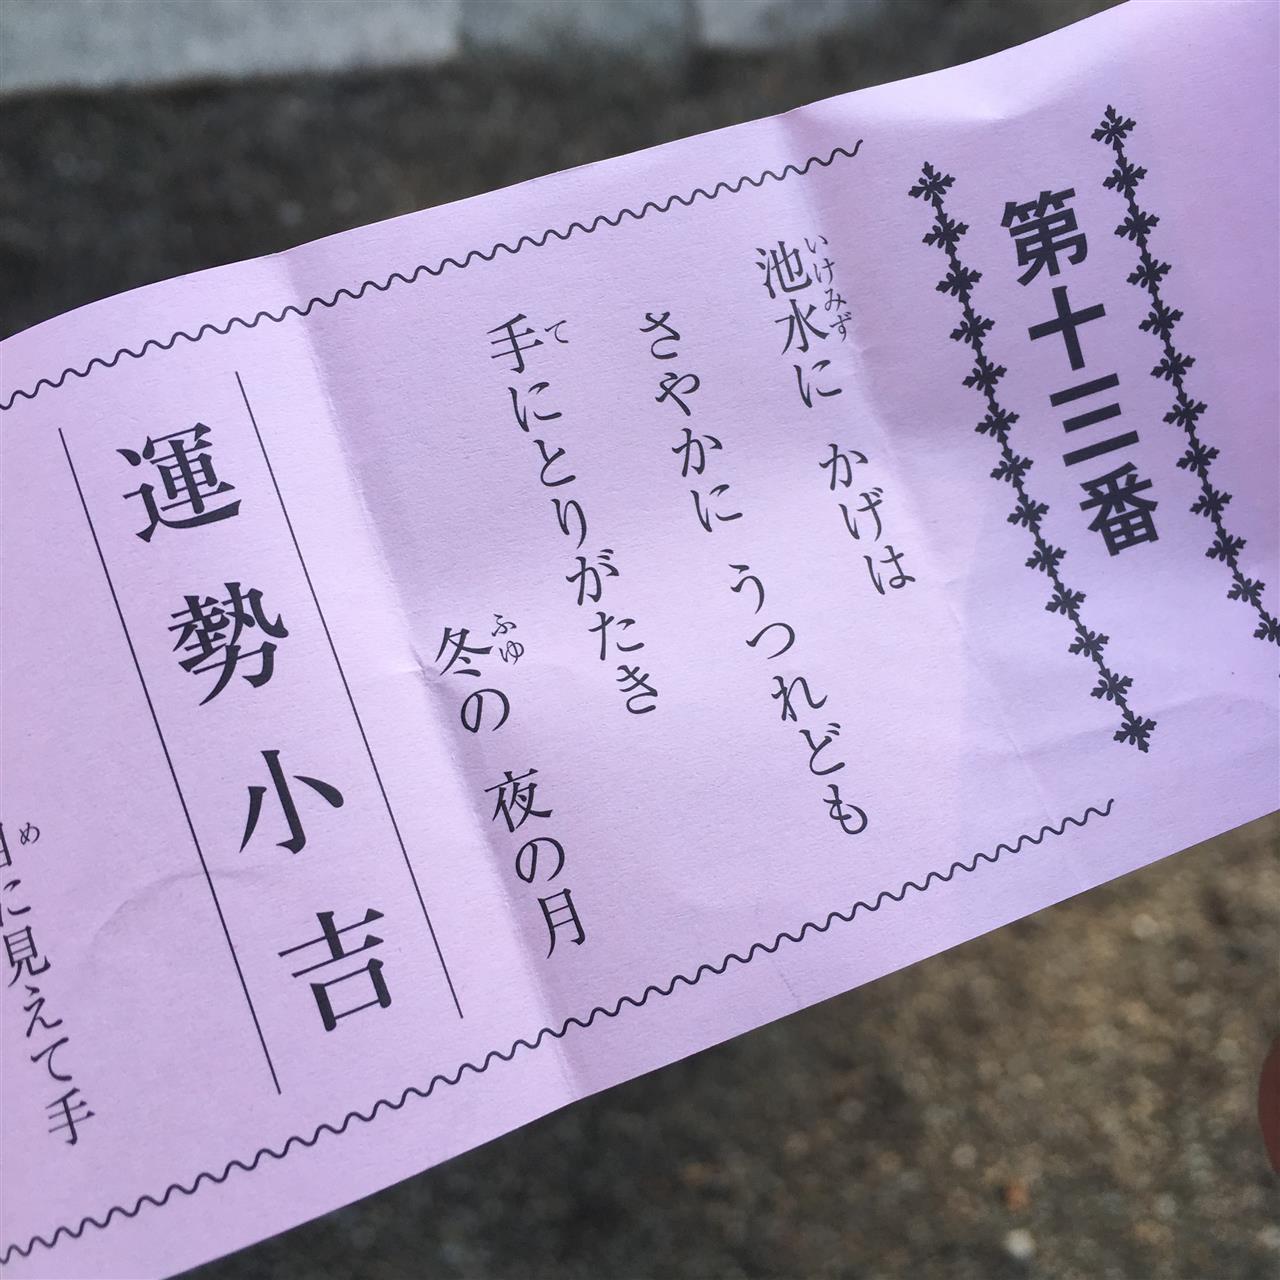 第十三番
池水に かげは
さやかに うつれども
手にとりがたき
冬の 夜の月
運勢小吉
目に見えて手